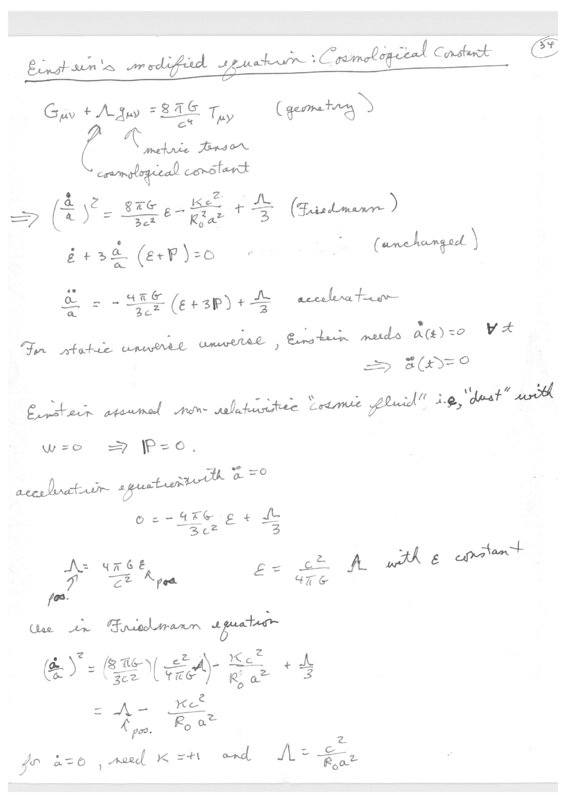 34
Einstein's modified equation: Cosmological Constant
Gμν + Λ gμν = 8πG/c⁴ Tμν (geometry)
metric tensor
cosmological constant
⟹ (ȧ/a)² = 8πG/3c² ε − κc²/R₀²a² + Λ/3 (Friedmann)
ε̇ + 3 ȧ/a (ε+P) = 0 (unchanged)
ä/a = − 4πG/3c² (ε+3P) + Λ/3 acceleration
For static universe universe, Einstein needs ȧ(t)=0 ∀ t
⟹ ä(t)=0
Einstein assumed non-relativistic "cosmic fluid" i.e, "dust" with
w=0 ⟹ P=0.
acceleration equation with ä=0
0 = − 4πG/3c² ε + Λ/3
Λ = 4πGε/c² ε = c²/4πG Λ with ε constant
pos. pos
Use in Friedmann equation
(ȧ/a)² = (8πG/3c²)(c²/4πG Λ) − κc²/R₀a² + Λ/3
= Λ − κc²/R₀a²
pos.
for ȧ=0, need κ=+1 and Λ = c²/R₀a²